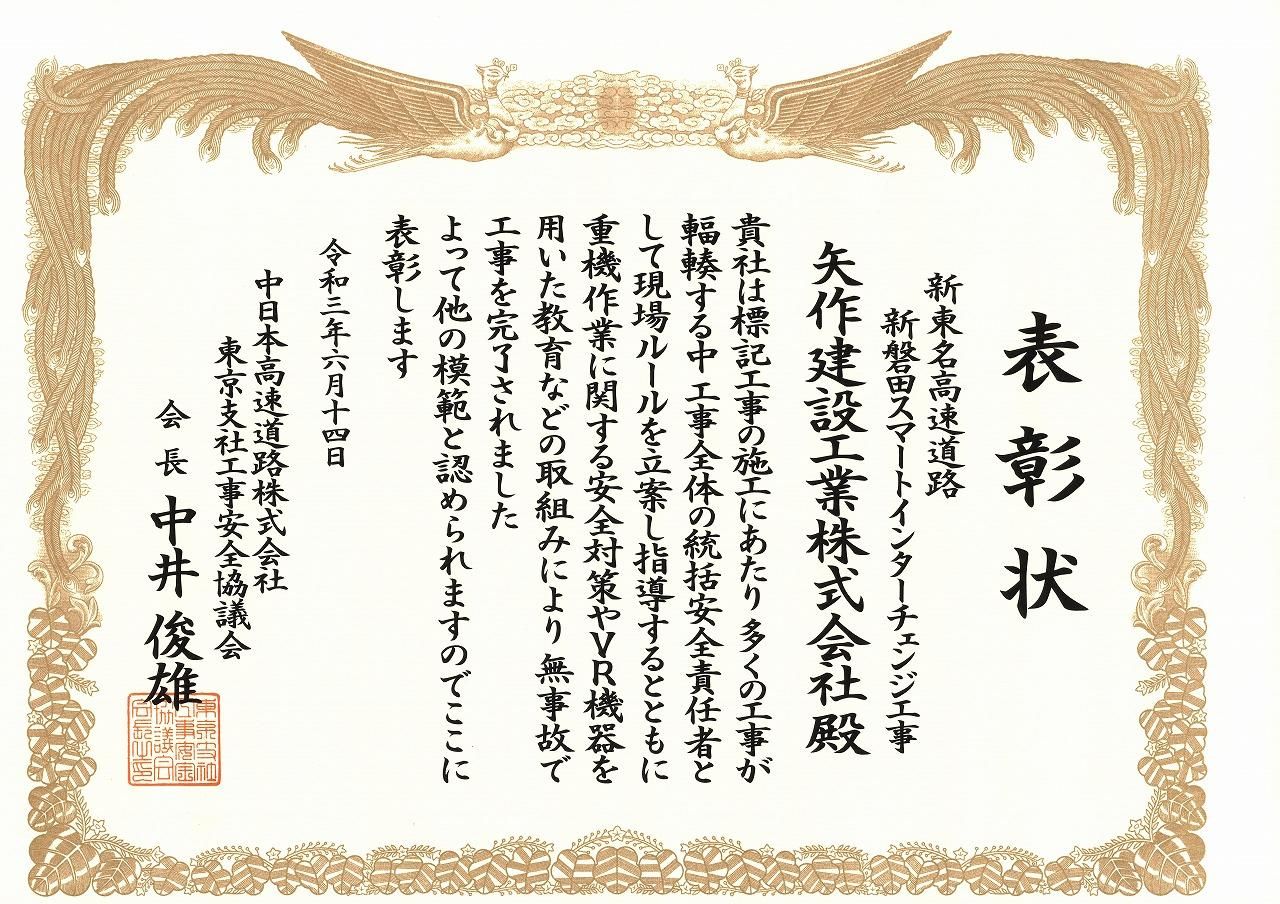 表彰状
新東名高速道路
新磐田スマートインターチェンジ工事
矢作建設工業株式会社殿
貴社は標記工事の施工にあたり多くの工事が
輻輳する中 工事全体の統括安全責任者と
して現場ルールを立案し指導するとともに
重機作業に関する安全対策やVR機器を
用いた教育などの取組みにより 無事故で
工事を完了されました
よって他の模範と認められますのでここに
表彰します
令和三年六月十四日
中日本高速道路株式会社
東京支社工事安全協議会
会長 中井俊雄
東京支社
工事安全
協議会
会長之印